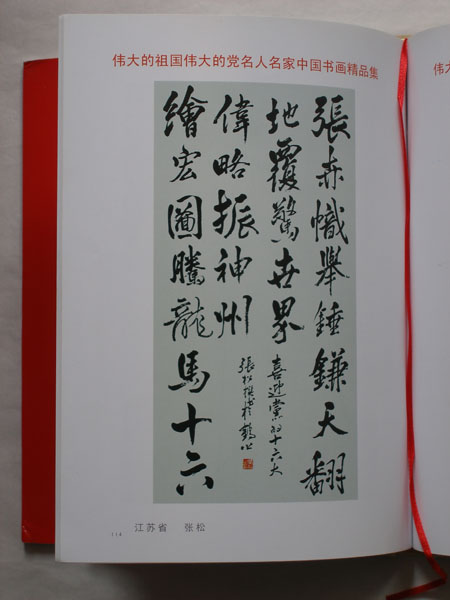 伟大的祖国伟大的党名人名家中国书画精品集
張赤幟舉錘鎌天翻
地覆驚世界
喜迎黨的十六大
繪宏圖騰龍馬十六
偉略振神州
張松撰書於鶴
江苏省 张松
114
伟